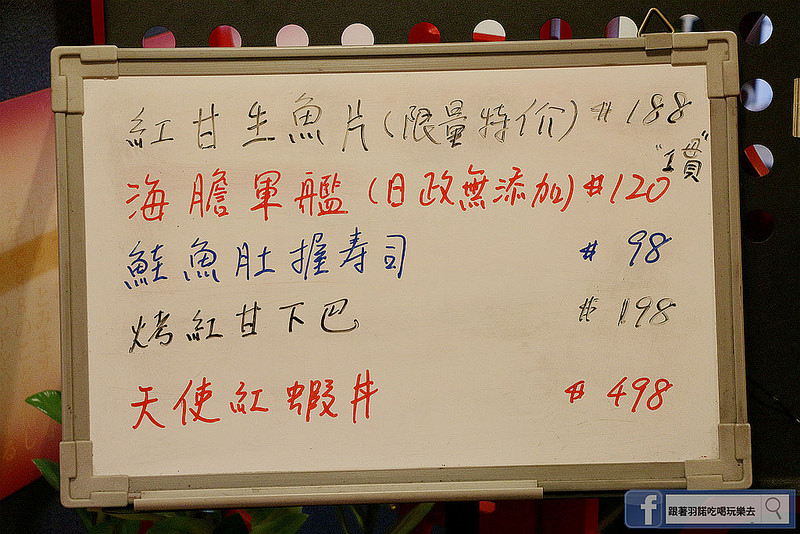 紅甘生魚片(限量特价) # 188
海膽軍艦(日政無添加) # 120 "1貫"
鮭魚肚握寿司 # 98
烤紅甘下巴 # 198
天使紅蝦丼 # 498
跟著羽諾吃喝玩樂去